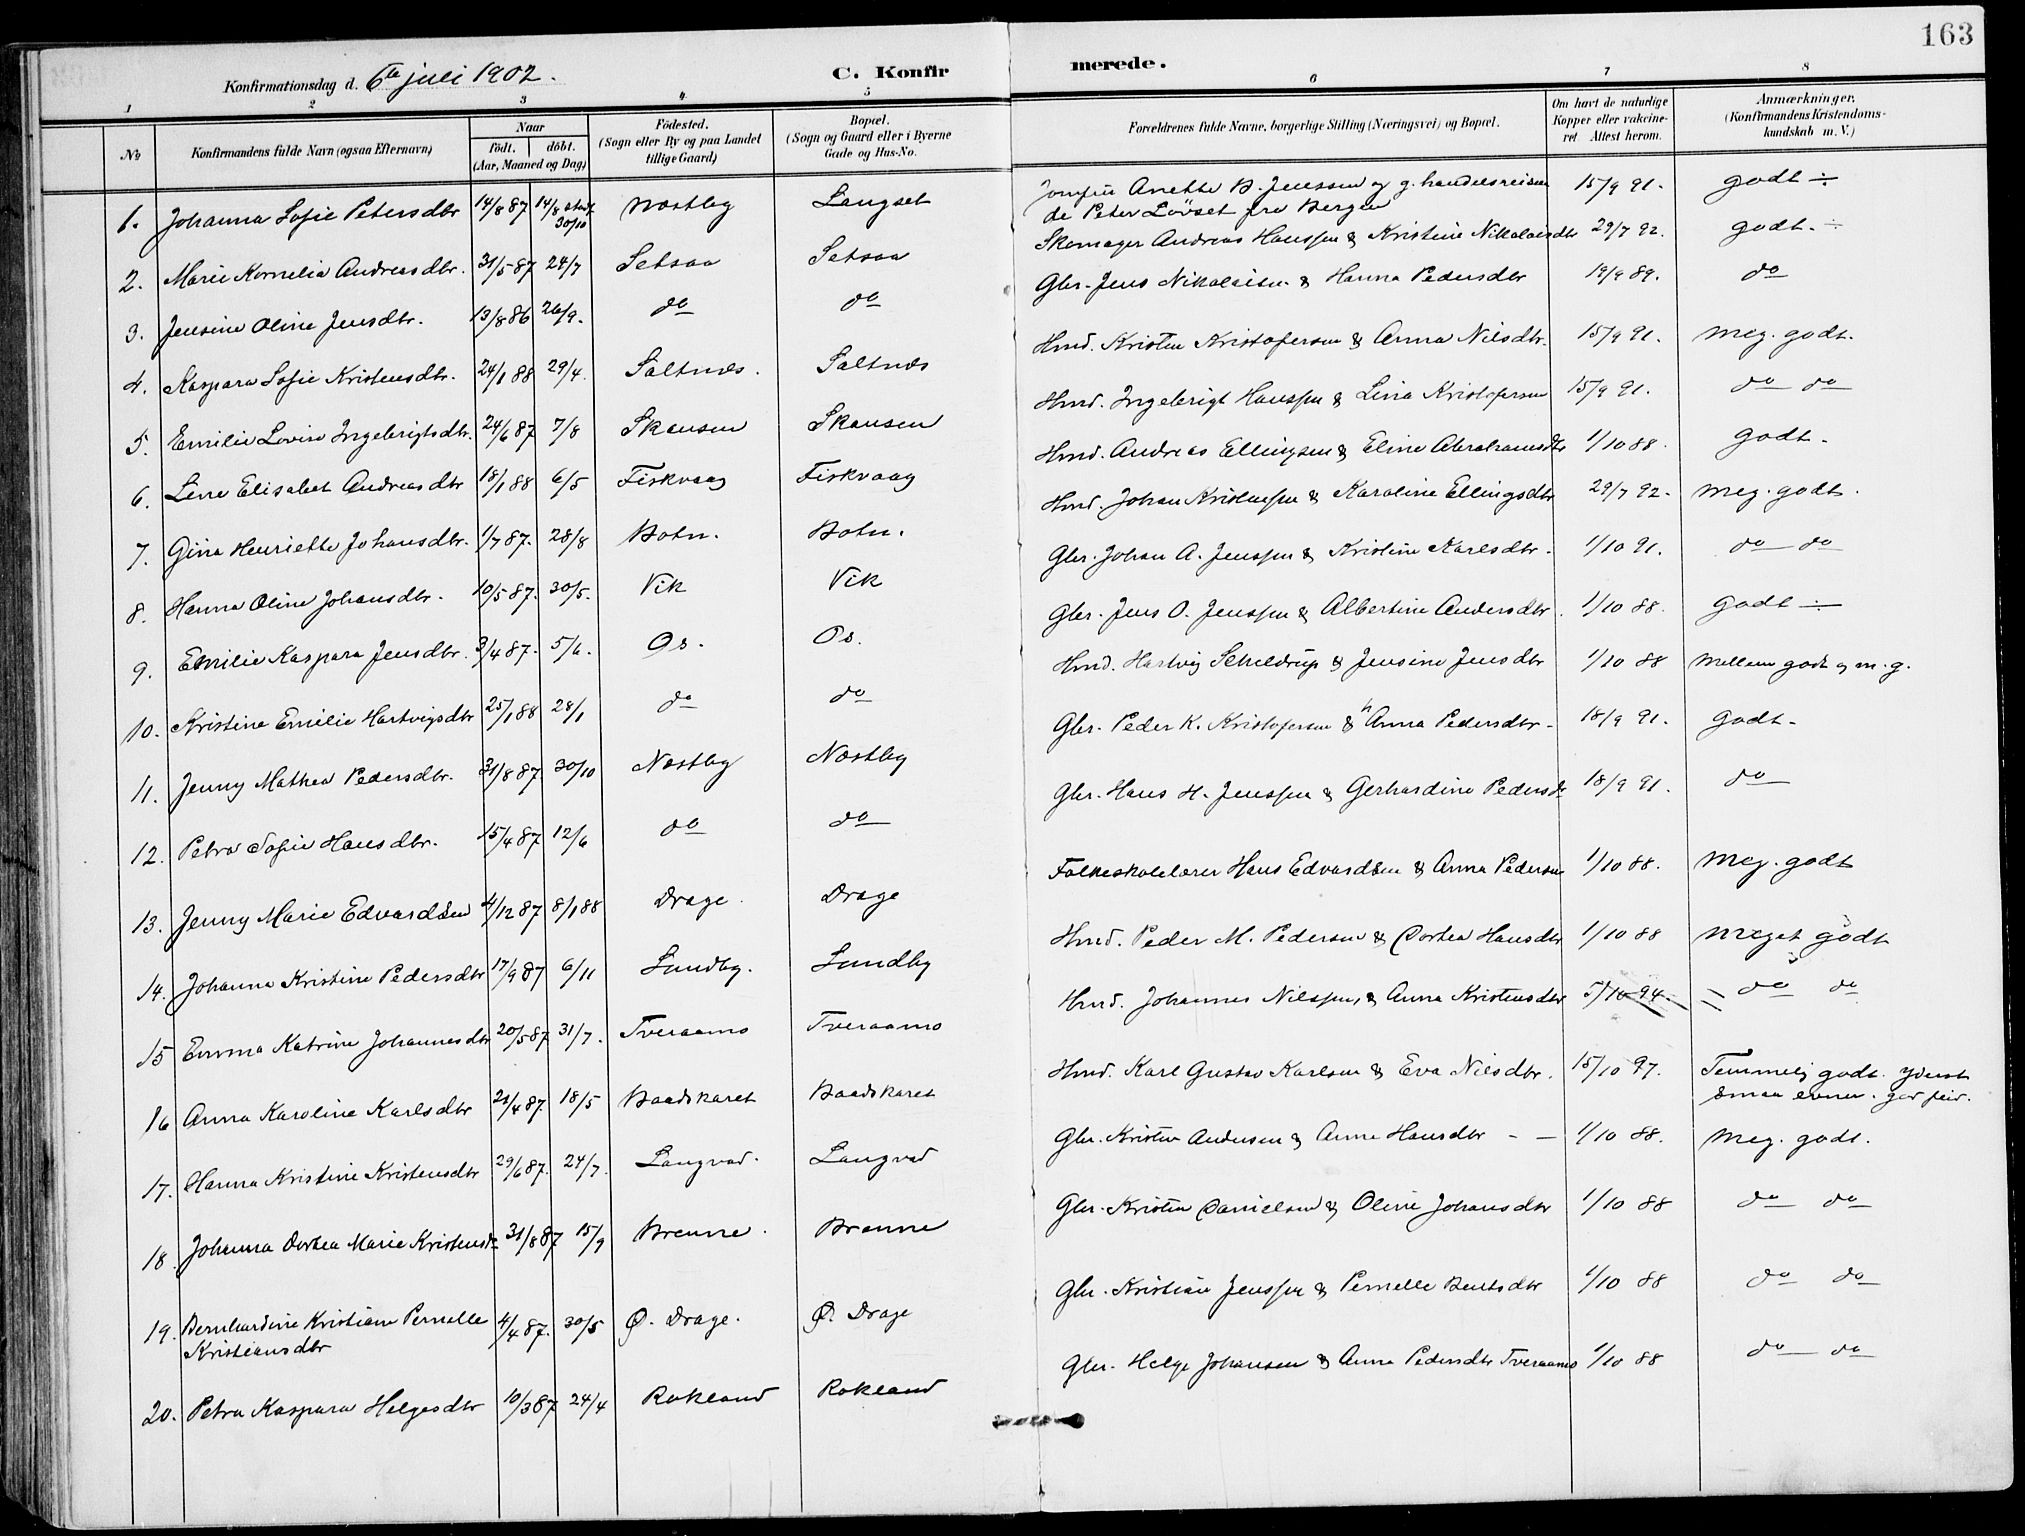 163
Konfirmationsdag d. 6te juli 1902.
C. Konfir
merede.
1 2 3 4 5 6 7 8
No
Konfirmandens fulde Navn (ogsaa Efternavn)
Naar
født. døbt.
(Aar, Maaned og Dag)
Fødested.
(Sogn eller By og paa Landet
tillige Gaard)
Bopæl.
(Sogn og Gaard eller i Byerne
Gade og Hus-No.
Forældrenes fulde Navne, borgerlige Stilling (Næringsvei) og Bopæl.
Om havt de naturlige
Kopper eller vakcine-
ret. Attest herom.
Anmærkninger.
(Konfirmandens Kristendoms-
kundskab m. V.)
1. Johanna Sofie Petersdtr 14/8 87 14/8 30/10 Næstby Langset Jomfru Anette B. Jenssen og g. handelsreisen
de Peter Løvset fra Bergen 15/9 91. godt ÷
2. Marie Kornelia Andreasdtr. 31/5 87 24/7 Setsaa Setsaa Skomager Andreas Hanssen & Kristine Nikolaisdtr 29/7 92. godt. ÷
3. Jensine Oline Jensdtr. 13/8 86 26/9. do do Gbr. Jens Nikolaisen & Hanna Pedersdtr 19/9 89. do
4. Kaspara Sofie Kristensdtr. 24/1 88 29/4. Saltnes. Saltnæs Hmd. Kristen Kristofersen & Anna Nilsdtr. 15/9 91. Meg. godt.
5. Emilie Lovise Ingebrigtsdtr. 24/6 87 7/8 Skansen Skansen Hmd. Ingebrigt Hanssen & Lina Kristofersen 15/9 91. do do
6. Lene Elisabet Andreasdtr 18/1 88 6/5 Fiskvaag Fiskvaag Hmd. Andreas Ellingsen & Eline Abrahamsdtr 1/10 88. godt.
7. Gina Henriette Johansdtr. 1/7 87. 28/8 Botn. Botn. Hmd. Johan Kristenssen & Karoline Ellingsdtr 29/7 92. Meg. godt.
8. Hanna Oline Johansdtr. 10/5 87. 30/5. Vik Vik Gbr. Johan A. Jenssen & Kristine Karlsdtr. 1/10 91. do do
9. Emilie Kaspara Jensdtr. 3/4 87. 5/6. Os. Os. Gbr. Jens O. Jenssen & Albertine Andersdtr. 1/10 88. godt ÷
10. Kristine Emilie Hartvigsdtr 25/1 88 28/1 do do Hmd. Hartvig Scheldrup & Jensine Jensdtr 1/10 88 Mellem godt og m. g.
11. Jenny Mathea Pedersdtr. 31/8 87. 30/10 Næstby Næstby Gbr. Peder K. Kristofersen & Anna Pedersdtr. 18/9 91. godt.
12. Petra Sofie Hansdtr. 15/4 87 12/6 do do Gbr. Hans H. Jenssen & Gerhardine Pedersdtr 18/9 91. do
13. Jenny Marie Edvardsen 4/12 87 8/1 88 Drage. Drage Folkeskolelærer Hans Edvardsen & Anna Pedersen 1/10 88. Meg. godt
14. Johanna Kristine Pedersdtr 17/9 87 6/11 Sundby. Sundby Hmd. Peder M. Pedersen & Dortea Hansdtr 1/10 88 Meget godt
15 Emma Katrine Johannesdtr 20/5 87 31/7. Tveraamo Tveraamo Hmd. Johannes Nilssen, & Anna Kristensdtr 5/10 94. do do
16 Anna Karoline Karlsdtr 21/4 87. 18/5 Baadskaret Baadskaret Hmd. Karl Gustav Karlsen & Eva Nilsdtr. 15/10 97. Temmelig godt. yderst
smaa evner. god flid.
17. Hanna Kristine Kristensdtr 29/6 87. 24/7. Langvad. Langvad Gbr. Kristen Andersen & Anne Hansdtr - - 1/10 88. Meg. godt.
18. Johanna Dortea Marie Kristensdtr 31/8 87 15/9 Brenne. Brenne Gbr. Kristen Danielsen & Oline Johansdtr 1/10 88 do do
19. Bernhardine Kristiane Pernelle
Kristiansdtr 4/4 87. 30/5 Ø. Drage. Ø. Drage Gbr. Kristian Jenssen & Pernelle Bentsdtr 1/10 88 do do
20. Petra Kaspara Helgesdtr 10/3 87 24/4 Rokland Rokland Gbr. Helge Johansen & Anna Pedersdtr Tveraamo 1/10 88 do do